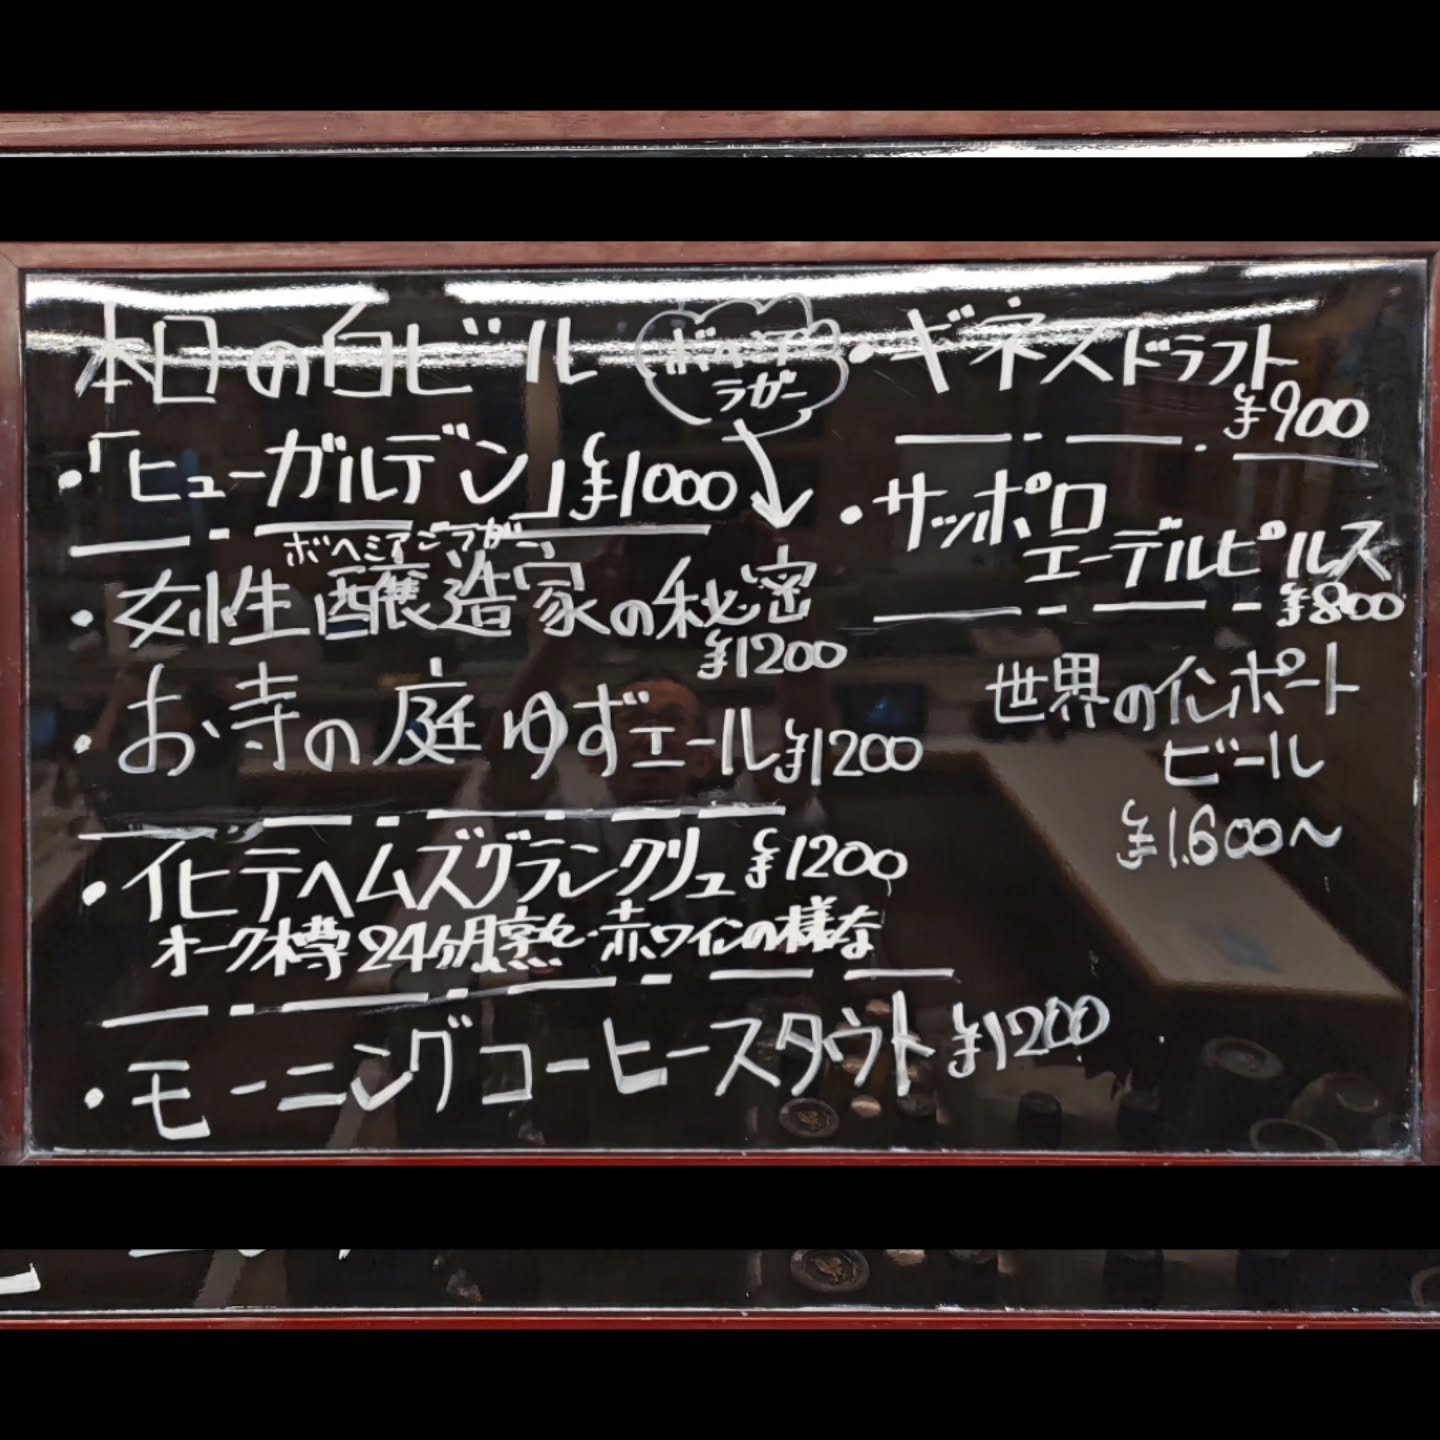 本日の白ビール
・「ヒューガルデン」¥1000
ボヘミアンラガー
・女性醸造家の秘密
¥1200
・お寺の庭ゆずエール¥1200
・イヒテヘムズグランクリュ¥1200
オーク樽24ヶ月熟 赤ワインの様な
・モーニングコーヒースタウト¥1200
ボヘミア
ラガー
・ギネスドラフト
¥900
・サッポロ
エーデルピルス
¥800
世界のインポート
ビール
¥1.600〜